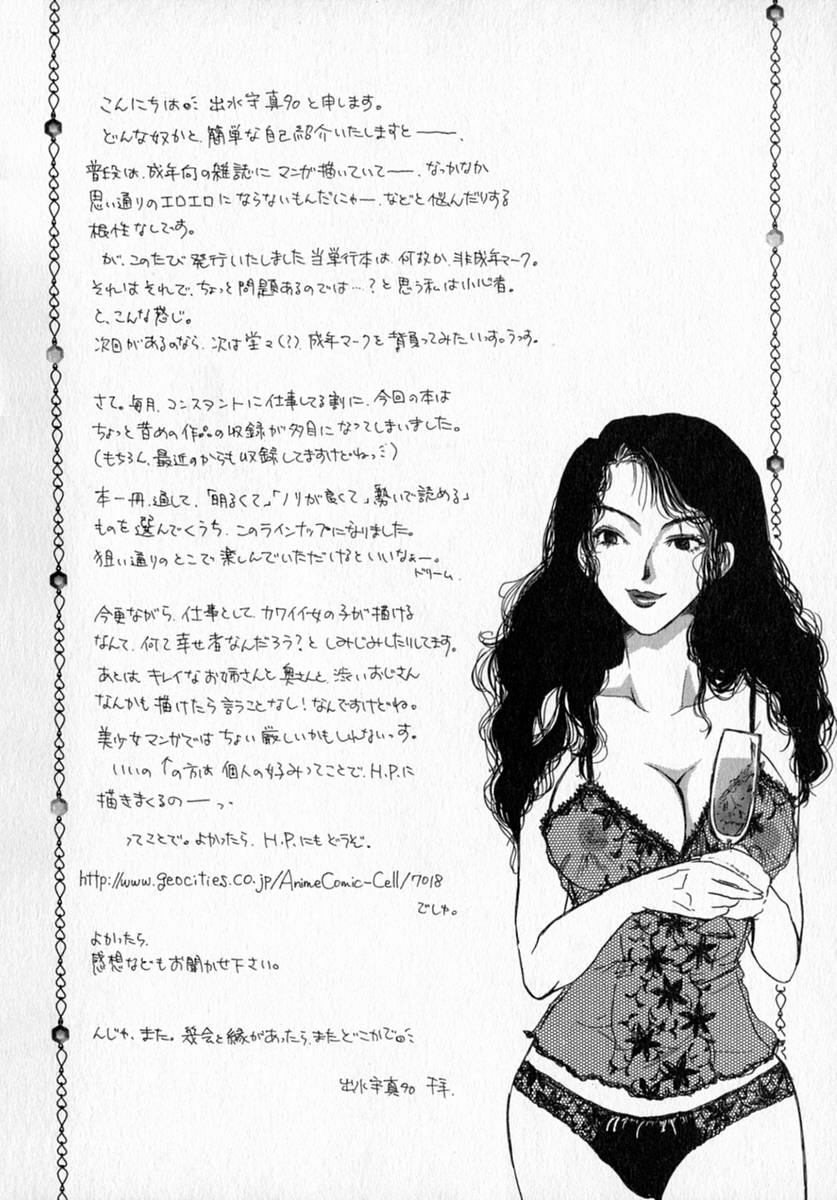 こんにちは。 出水宇真90と申します。
どんな奴かと、簡単な自己紹介いたしますと――、
普段は、成年向の雑誌に マンガ描いていて――、なっかなか
思い通りのエロエロに ならないもんだにゃー、などと悩んだりする
根性なしです。
が、このたび 発行いたしました 当単行本は 何故か、非成年マーク。
それはそれで、ちょっと問題あるのでは…?と思う私は小心者。
と、こんな感じ。
次回があるのなら、次は堂々(?)、成年マークを背負ってみたいっす。うっす。
さて。毎月、コンスタントに仕事してる割に、今回の本は
ちょっと昔めの作品の収録が多目になってしまいました。
(もちろん、最近のからも収録してますけどねっ)
本一冊、通して、「明るくて」「ノリが良くて」「勢いで読める」
ものを選んでくうち、このラインナップになりました。
狙い通りのとこで楽しんでいただけるといいなぁー。
ドリーム。
今更ながら、仕事として、カワイイ女の子が描ける
なんて、何て幸せ者なんだろう?と しみじみしたりしてます。
あとは キレイなお姉さんと奥さんと、渋いおじさん
なんかも描けたら言うことなし!なんですけどね。
美少女マンガでは ちょい厳しいかもしれないっす。
いいの ↑の方は 個人の好みってことで、H.P.に
描きまくるの――っ、
ってことで。よかったら、H.P.にもどうぞ。
http://www.geocities.co.jp/AnimeComic-Cell/7018
でしゅ。
よかったら、
感想なども お聞かせ下さい。
んじゃ、また。機会と縁があったら、またどこかで。
出水宇真90